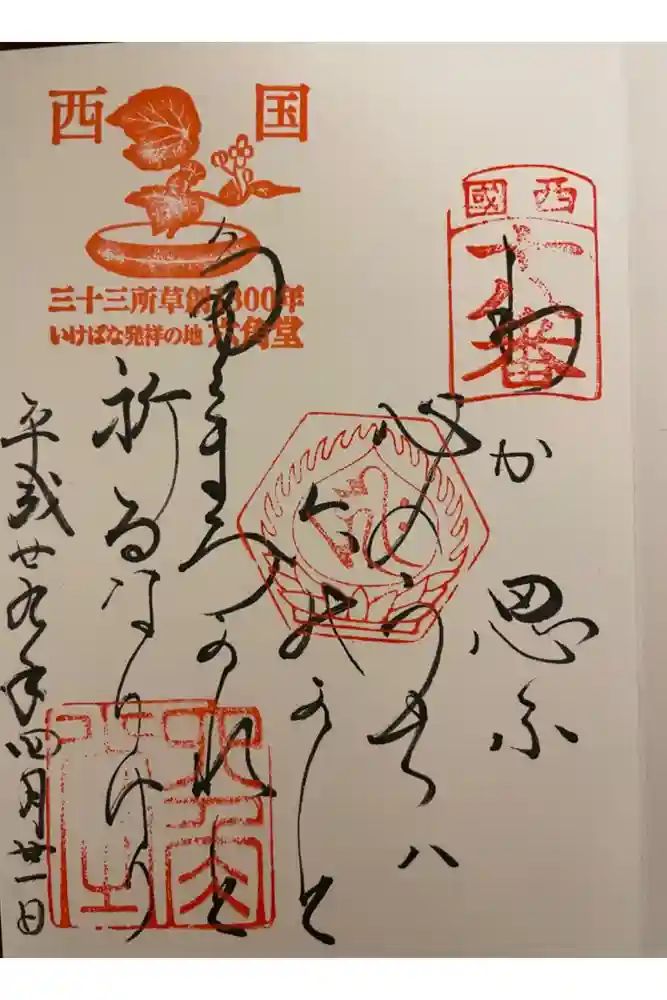 西国
三十三所草創1300年
いけばな発祥の地 六角堂
西國
十八番
わか思ふ
心のうちハ
六のかと
まろかれと
祈るなりけり
平成廿九年四月廿一日